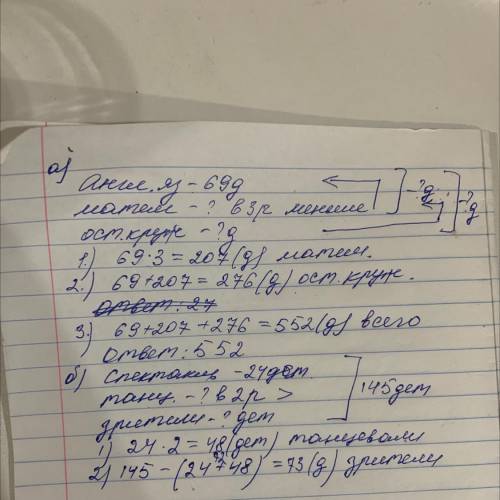 а)
Англ. яз – 69д
матем – ? в 3р меньше –?д.
ост. круж – ?д –?д
1.) 69·3 = 207(д) матем.
2.) 69+207 = 276(д) ост. круж.
ответ: 27
3.) 69+207+276 = 552(д) всего
Ответ: 552
б) Спектакль – 24дет
танц. – ? в 2р >
зрители – ? дет 145дет
1) 24·2 = 48(дет) танцевали
2) 145 – (24+48) = 73(д) зрители